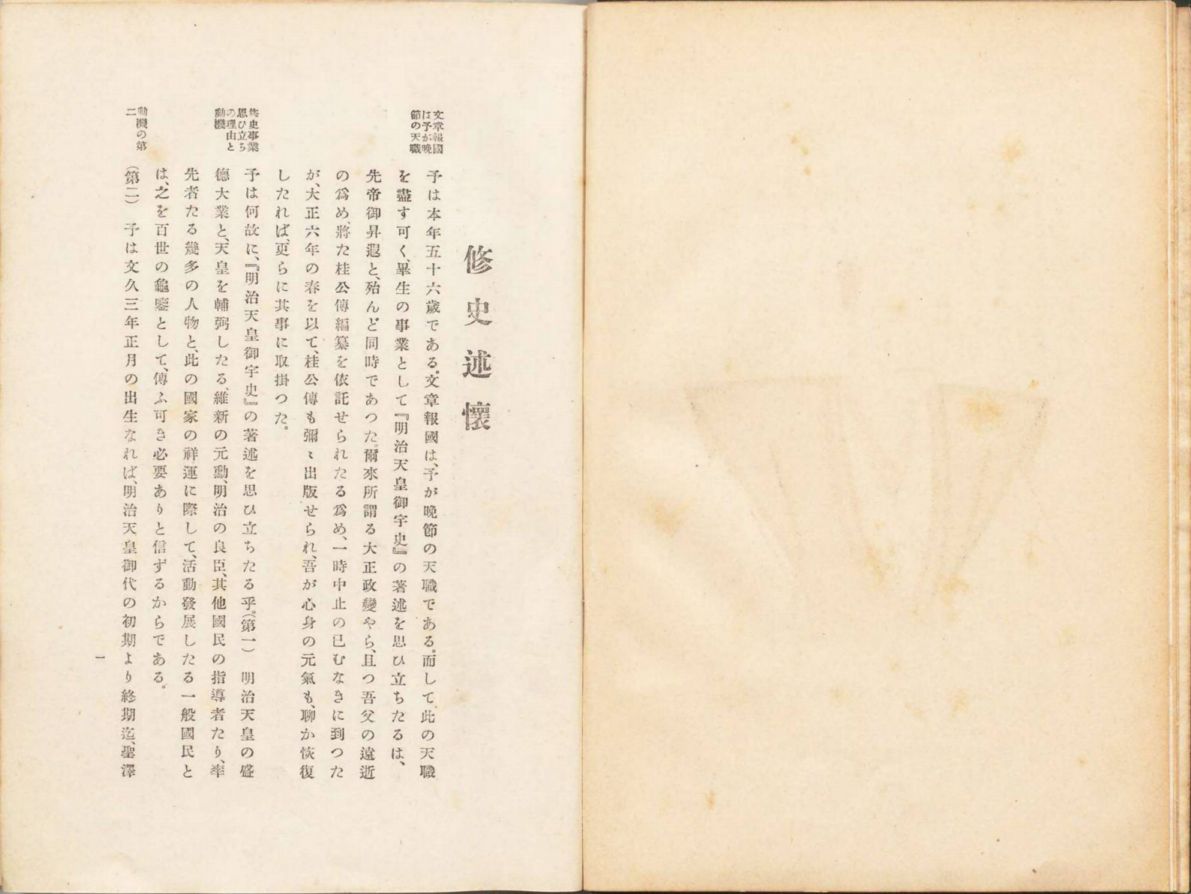 修史述懷
文章報國
は予が晩
節の天職
予は本年五十六歲である。文章報國は、予が晩節の天職である。而して、此の天職
を盡す可く、畢生の事業として『明治天皇御宇史』の著述を思ひ立ちたるは、
先帝御昇遐と、殆んど同時であつた。爾來所謂る大正政變やら、且つ吾父の遠逝
の爲め、將た桂公傳編纂を依託せられたる爲め、一時中止の已むなきに到つた
が、大正六年の春を以て、桂公傳も彌〻出版せられ、吾が心身の元氣も、聊か恢復
したれば、更らに其事に取掛つた。
修史事業
思ひ立ち
の理由と
動機
予は何故に、『明治天皇御宇史』の著述を思ひ立ちたる乎。(第一) 明治天皇の盛
德大業と、天皇を輔弼したる、維新の元勳、明治の良臣、其他國民の指導者たり、率
先者たる幾多の人物と、此の國家の祥運に際して、活動發展したる一般國民と
は、之を百世の龜鑒として、傳ふ可き必要ありと信ずるからである。
動機の第
二
(第二) 予は文久三年正月の出生なれば、明治天皇御代の初期より終期迄、聖澤
一